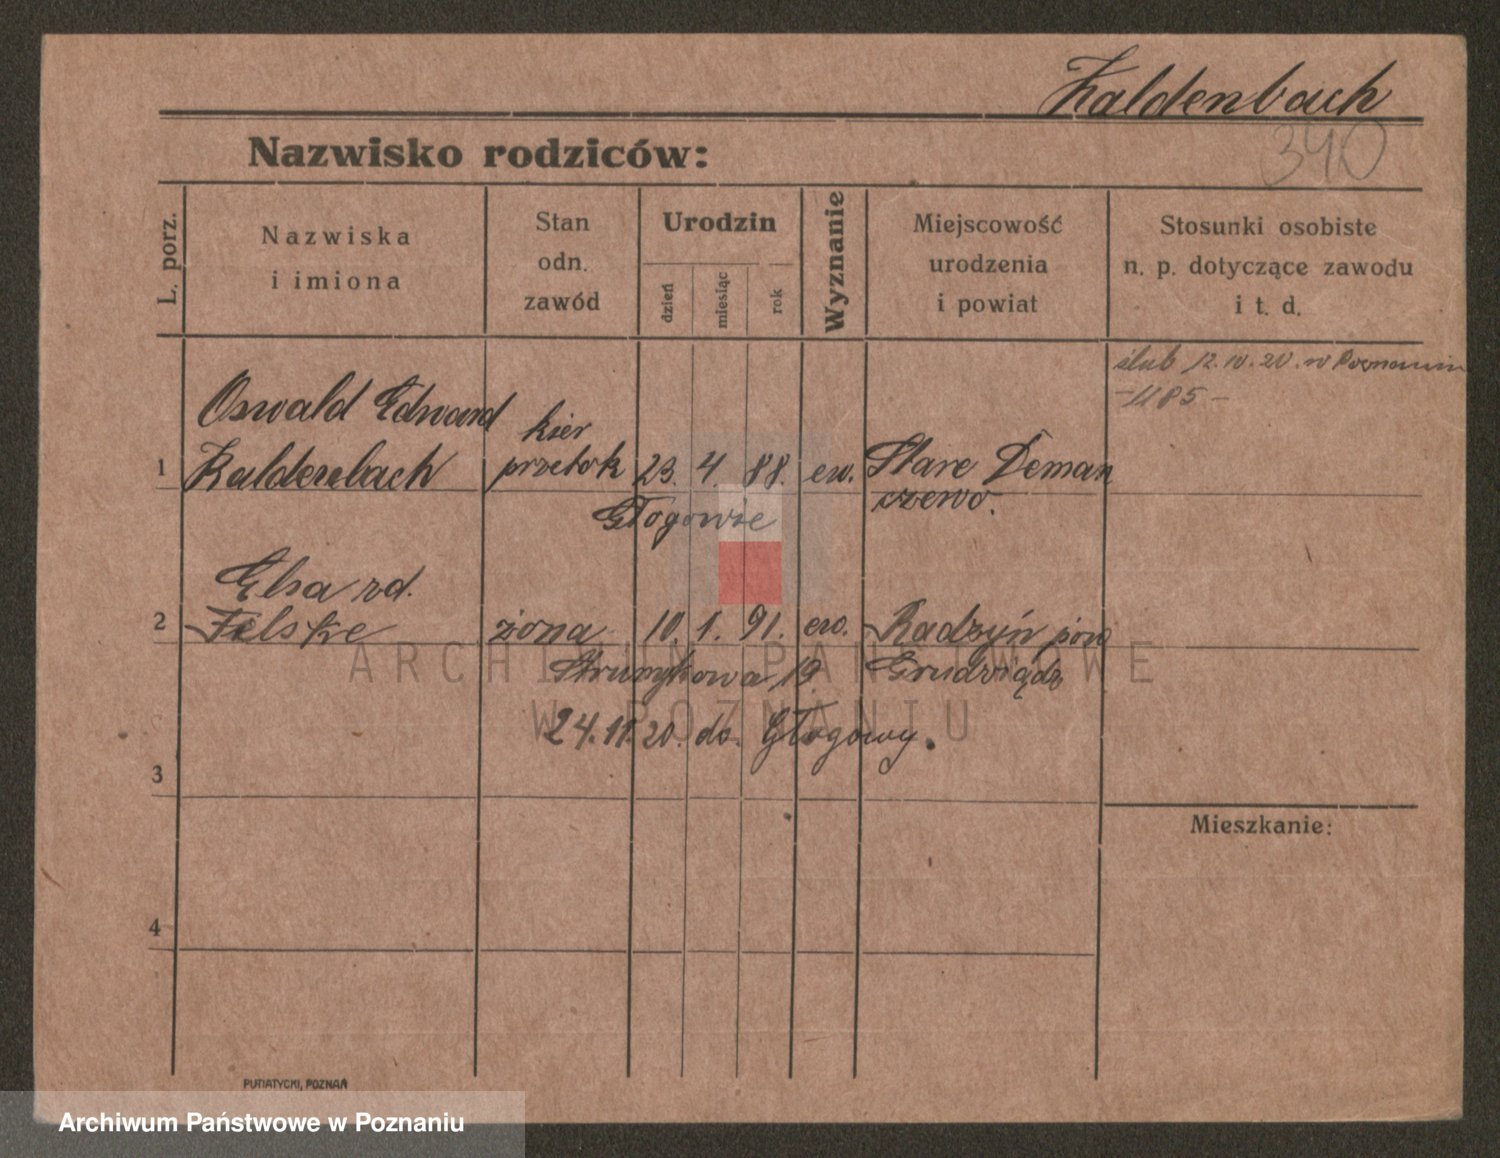 Kaldenbach
340
Nazwisko rodziców:
L. porz.
Nazwiska
i imiona
Stan
odn.
zawód
Urodzin
dzień
miesiąc
rok
Wyznanie
Miejscowość
urodzenia
i powiat
Stosunki osobiste
n. p. dotyczące zawodu
i t. d.
ślub 12.10.20. w Poznaniu
-1185-
Oswald Edward
kier
1 Kaldenbach przetok 23. 4. 88. ew. Stare Deman
czewo.
Głogowie
Elsa rd.
2 Felske żona 10. 1. 91. ew. Radzyń pow
Grudziądz
Strumykowa 19
24.11.20. do. Głogowy.
3
Mieszkanie:
4
PUTIATYCKI, POZNAŃ
ARCHIWUM PAŃSTWOWE
W POZNANIU
Archiwum Państwowe w Poznaniu